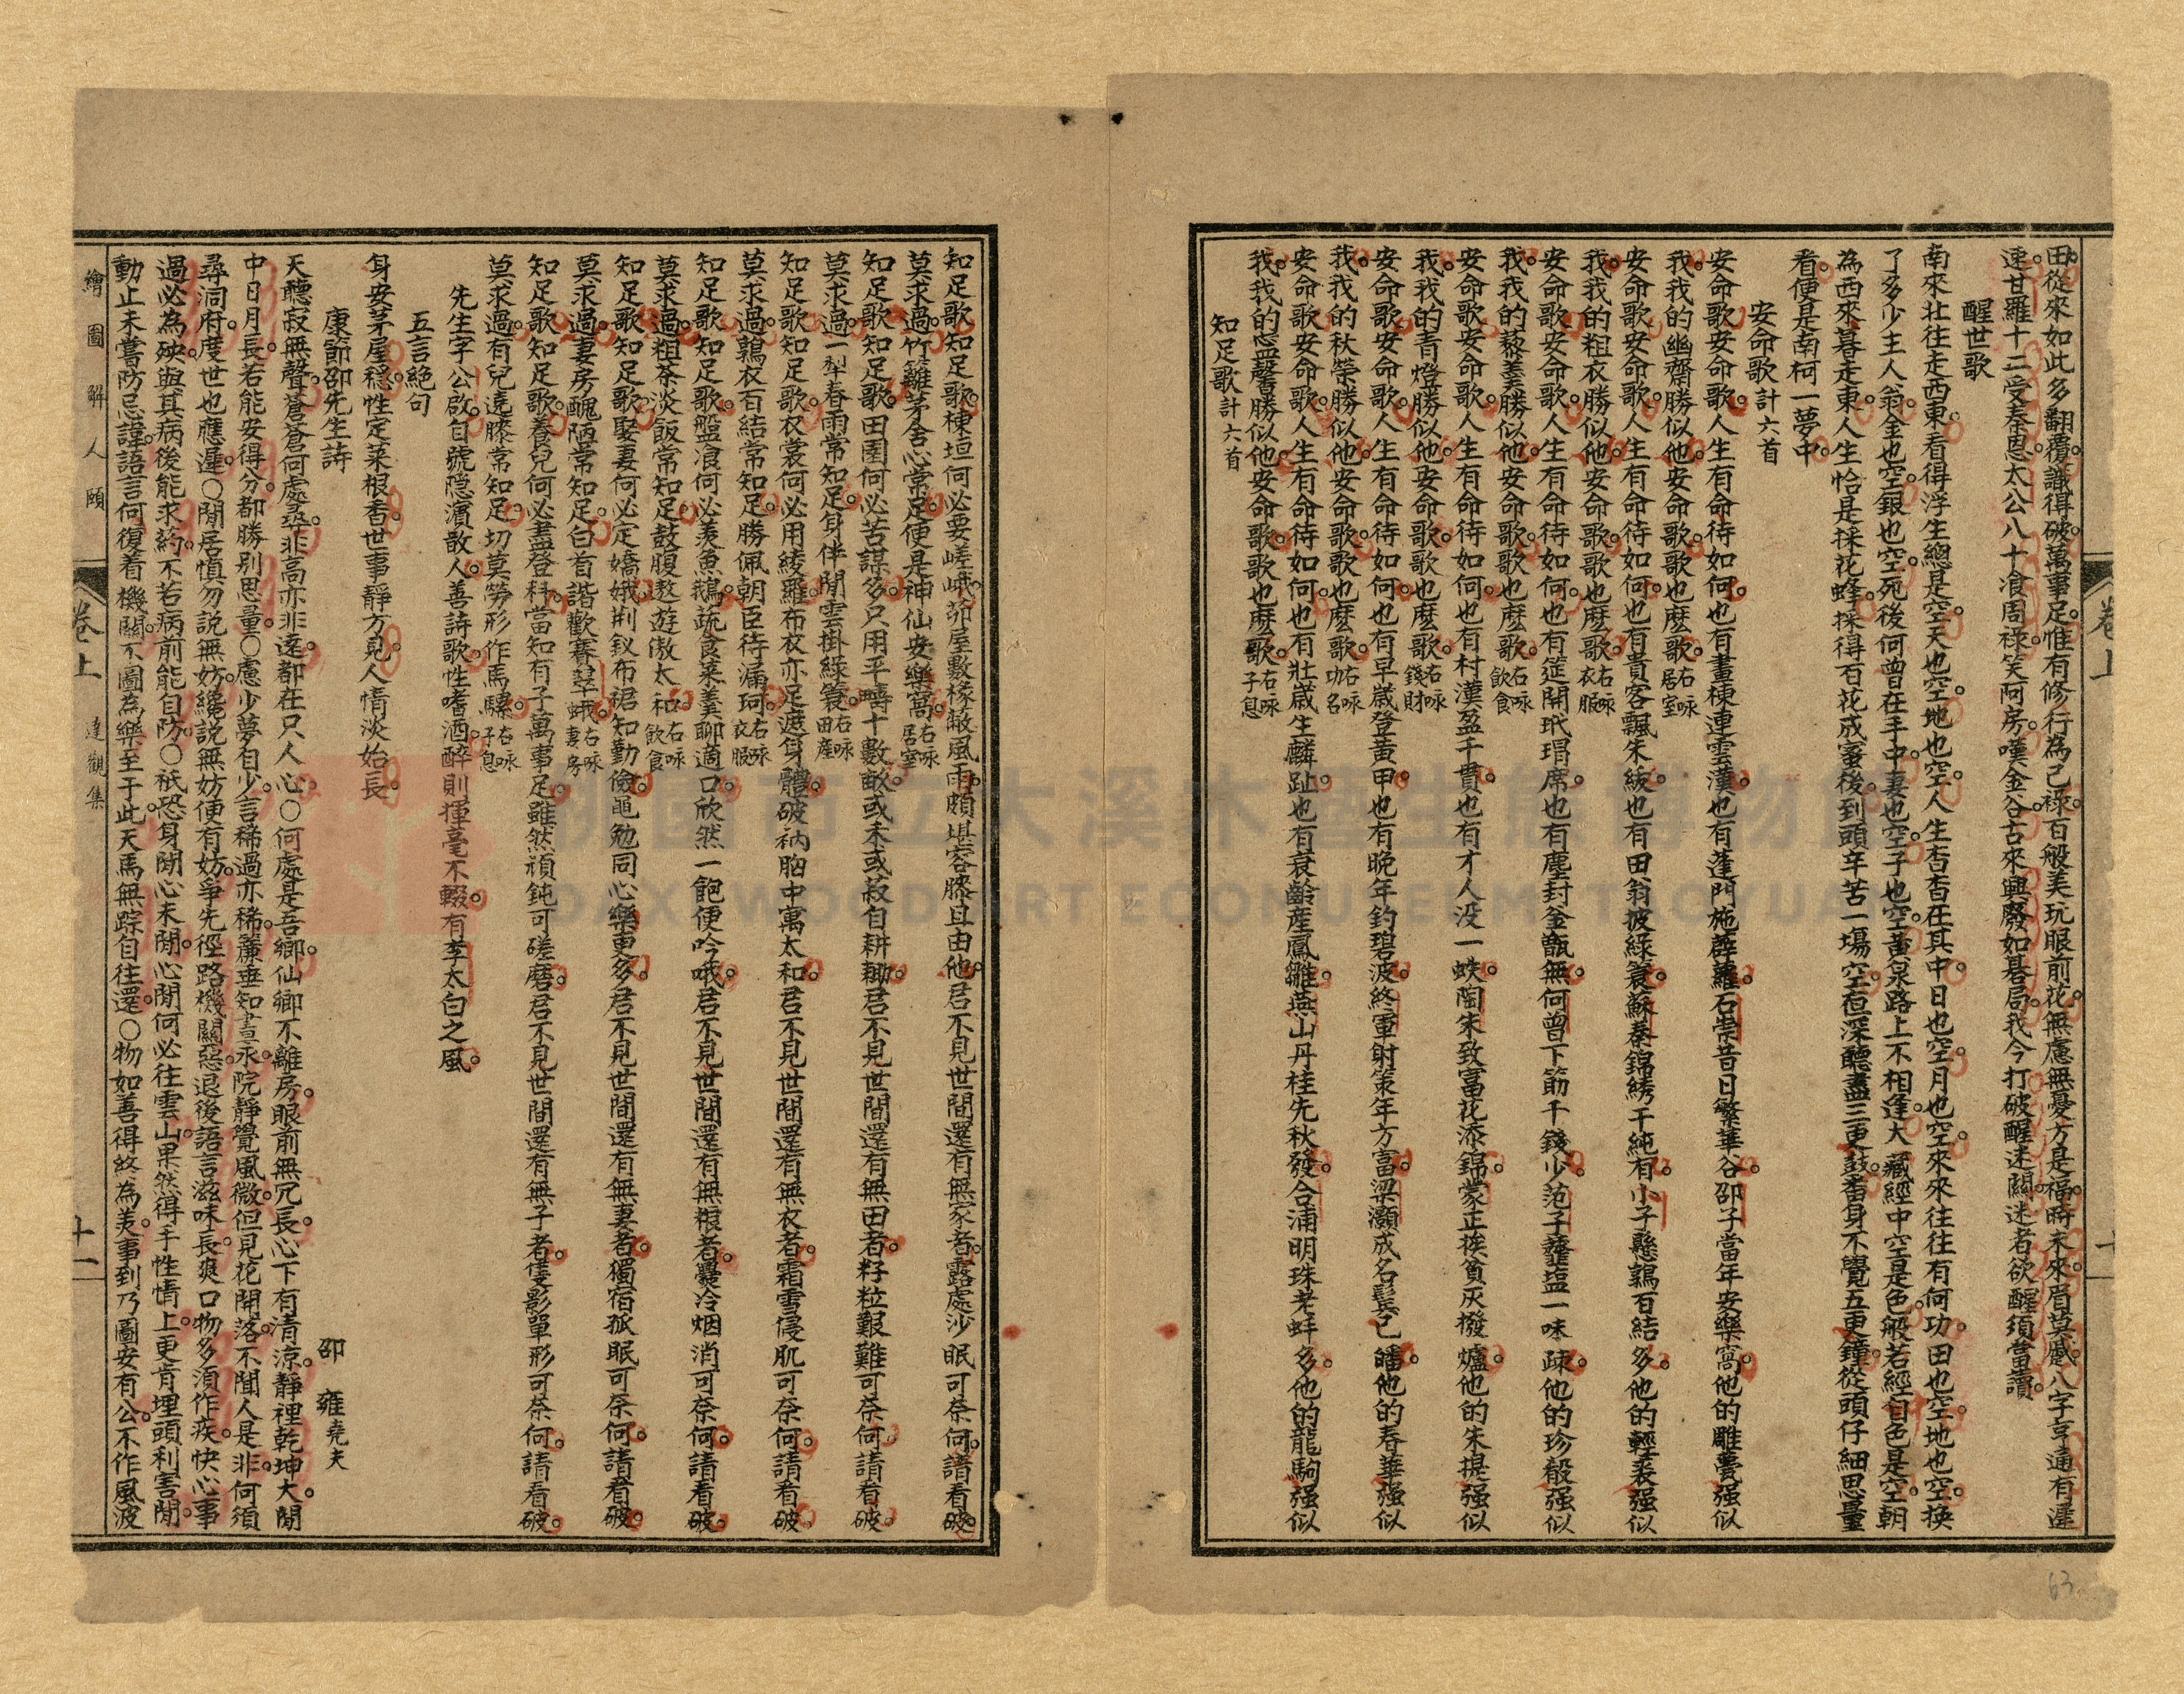 田從來如此多翻覆識得破萬事足惟有修行為己祿百般美玩眼前花無慮無憂方是福時未來眉莫蹙八字亨通有遲
速甘羅十二受秦恩太公八十飡周祿笑阿房嘆金谷古來興廢如棊局我今打破醒迷關迷者欲醒須當讀
醒世歌
南來北往走西東看得浮生總是空天也空地也空人生杳杳在其中日也空月也空來來往往有何功田也空地也空換
了多少主人翁金也空銀也空死後何曾在手中妻也空子也空黃泉路上不相逢大藏經中空是色般若經自色是空朝
為西來暮走東人生恰是採花蜂採得百花成蜜後到頭辛苦一場空夜深聽盡三更鼓番身不覺五更鐘從頭仔細思量
看便是南柯一夢中
安命歌計六首
安命歌安命歌人生有命待如何也有畫棟連雲漢也有蓬門施薜蘿石崇昔日繁華谷邵子當年安樂窩他的雕甍强似
我我的幽齋勝似他安命歌歌也麽歌右咏居室
安命歌安命歌人生有命待如何也有貴客飄朱紱也有田翁披綠簑蘇秦錦綉千純有小子懸鶉百結多他的輕裘强似
我我的粗衣勝似他安命歌歌也麽歌右咏衣服
安命歌安命歌人生有命待如何也有筵開玳瑁席也有塵封釜甑無何曾下筯千錢少范子虀塩一味疎他的珍殽强似
我我的藜羹勝似他安命歌歌也麽歌右咏飲食
安命歌安命歌人生有命待如何也有村漢盈千貫也有才人没一蚨陶朱致富花添錦蒙正挨貧灰撥爐他的朱提强似
我我的青燈勝似他安命歌歌也麽歌右咏錢財
安命歌安命歌人生有命待如何也有早歲登黃甲也有晚年釣碧波終軍射策年方富梁灝成名鬂已皤他的春華强似
我我的秋榮勝似他安命歌歌也麽歌右咏功名
安命歌安命歌人生有命待如何也有壯歲生麟趾也有衰齡產鳳雛燕山丹桂先秋發合浦明珠老蚌多他的龍駒强似
我我的惡馨勝似他安命歌歌也麽歌右咏子息
知足歌計六首
知足歌知足歌棟垣何必要嵯峨茆屋數椽蔽風雨頗堪容膝且由他君不見世間還有無家者露處沙眠可奈何請看破
莫求過竹籬茅舍心常足便是神仙安樂窩右咏居室
知足歌知足歌田園何必苦謀多只用平疇十數畝或禾或菽自耕耡君不見世間還有無田者籽粒艱難可奈何請看破
莫求過一犁春雨常知足身伴閒雲掛綠簑右咏田產
知足歌知足歌衣裳何必用綾羅布衣亦足遮身體破衲胸中寓太和君不見世間還有無衣者霜雪侵肌可奈何請看破
莫求過鶉衣百結常知足勝佩朝臣待漏珂右咏衣服
知足歌知足歌盤飡何必羨魚鵝蔬食菜羹聊適口欣然一飽便吟哦君不見世間還有無粮者爨冷烟消可奈何請看破
莫求過粗茶淡飯常知足鼓腹遨遊傲太和右咏飲食
知足歌知足歌娶妻何必定嬌娥荆釵布裙知勤儉黽勉同心樂更多君不見世間還有無妻者獨宿孤眠可奈何請看破
莫求過妻房醜陋常知足白首諧歡賽翠蛾右咏妻房
知足歌知足歌養兒何必盡登科當知有子萬事足雖然頑鈍可磋磨君不見世間還有無子者隻影單形可奈何請看破
莫求過有兒遶膝常知足切莫勞形作馬騾右咏子息
先生字公啟自號隱濱散人善詩歌性嗜酒醉則揮毫不輟有李太白之風
五言絶句
身安茅屋穩性定菜根香世事靜方見人情淡始長
康節邵先生詩　邵　雍堯夫
天聽寂無聲蒼蒼何處尋非高亦非遠都在只人心○何處是吾鄉仙鄉不離房眼前無冗長心下有清涼靜裡乾坤大閒
中日月長若能安得分都勝别思量○慮少夢自少言稀過亦稀簾垂知晝永院靜覺風微但見花開落不聞人是非何須
尋洞府度世也應遲○閒居慎勿說無妨纔說無妨便有妨爭先徑路機關惡退後語言滋味長爽口物多須作疾快心事
過必為殃與其病後能求葯不若病前能自防○祇恐身閒心未閒心閒何必往雲山果然得手性情上更肯埋頭利害閒
動止未嘗防忌諱語言何復着機關不圖為樂至于此天馬無踪自往還○物如善得終為美事到乃圖安有公不作風波
繪圖解人頤　卷上　達觀集　十一
卷上